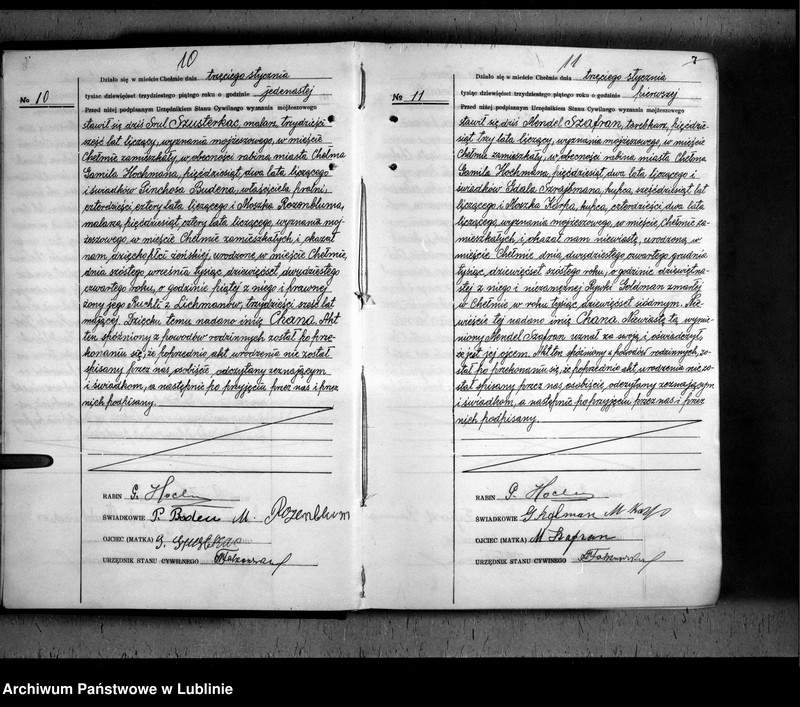 10
Działo się w mieście Chełmie dnia trzeciego stycznia
tysiąc dziewięćset trzydziestego piątego roku o godzinie jedenastej
No 10
Przed niżej podpisanym Urzędnikiem Stanu Cywilnego wyznania mojżeszowego
stawił się dziś Srul Szusterkac, malarz, trzydzieści
sześć lat liczący, wyznania mojżeszowego, w mieście
Chełmie zamieszkały, w obecności rabina miasta Chełma
Gamila Hochmana, pięćdziesiąt dwa lata liczącego
i świadków Pinchosa Budena, właściciela pralni,
czterdzieści cztery lata liczącego i Moszka Rozenbluma,
malarza, pięćdziesiąt cztery lata liczącego, wyznania moj-
żeszowego, w mieście Chełmie zamieszkałych i okazał
nam, dziecko płci żeńskiej, urodzone w mieście Chełmie,
dnia szóstego września tysiąc dziewięćset dwudziestego
czwartego roku, o godzinie piątej z niego i prawnej
żony jego Ruchli z Lichmanów, trzydzieści sześć lat
mającej. Dziecku temu nadano imię Chana. Akt
ten spóźniony z powodów rodzinnych został po prze-
konaniu się, że poprzednio akt urodzenia nie został
spisany przez nas, osobiście, odczytany zeznającym
i świadkom, a następnie po przyjęciu przez nas i przez
nich podpisany.
RABIN G. Hochm
ŚWIADKOWIE P. Boden M. Rozenblum
OJCIEC (MATKA) S.
URZĘDNIK STANU CYWILNEGO
11
7
Działo się w mieście Chełmie dnia trzeciego stycznia
tysiąc dziewięćset trzydziestego piątego roku o godzinie pierwszej
No 11
Przed niżej podpisanym Urzędnikiem Stanu Cywilnego wyznania mojżeszowego
stawił się dziś Mendel Szafran, tandeciarz, pięćdzie-
siąt trzy lata liczący, wyznania mojżeszowego, w mieście
Chełmie zamieszkały, w obecności rabina miasta Chełma
Gamila Hochmana, pięćdziesiąt dwa lata liczącego i
świadków Gdala Szrajbmana, kupca, sześćdziesiąt lat
liczącego i Moszka Korpa, kupca, czterdzieści dwa lata
liczącego, wyznania mojżeszowego, w mieście Chełmie za-
mieszkałych i okazał nam niewiastę, urodzoną w
mieście Chełmie dnia dwudziestego czwartego grudnia
tysiąc dziewięćset szóstego roku, o godzinie dziewiętna-
stej z niego i niezamężnej Rajzli Goldman zmarłej
w Chełmie w roku tysiąc dziewięćset siódmym. Nie-
wieście tej nadane imię Chana. Niewiastę tą wymie-
niony Mendel Szafran uznał za swoją i oświadczył,
że jest jej ojcem. Akt ten spóźniony z powodów rodzinnych, zo-
stał po przekonaniu się, że poprzednio akt urodzenia nie zo-
stał spisany przez nas, osobiście, odczytany zeznającym
i świadkom, a następnie po przyjęciu przez nas i przez
nich podpisany.
RABIN G. Hochm
ŚWIADKOWIE
OJCIEC (MATKA) M. Szafran
URZĘDNIK STANU CYWILNEGO
Archiwum Państwowe w Lublinie